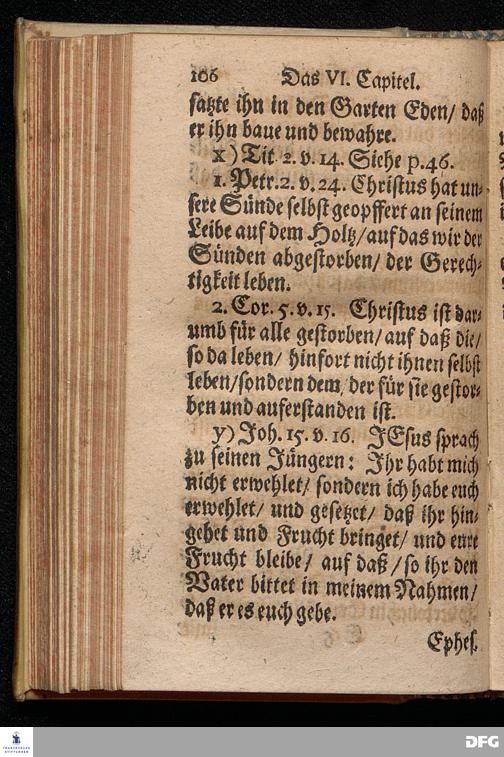 106 Das VI. Capitel.
satzte ihn in den Garten Eden/ daß
er ihn baue und bewahre.
x) Tit. 2. v. 14. Siehe p. 46.
1. Petr. 2. v. 24. Christus hat un-
sere Sünde selbst geopffert an seinem
Leibe auf dem Holtz/ auf das wir der
Sünden abgestorben/ der Gerech-
tigkeit leben.
2. Cor. 5. v. 15. Christus ist dar-
umb für alle gestorben/ auf daß die/
so da leben/ hinfort nicht ihnen selbst
leben/ sondern dem/ der für sie gestor-
ben und auferstanden ist.
y) Joh. 15. v. 16. JEsus sprach
zu seinen Jüngern: Ihr habt mich
nicht erwehlet/ sondern ich habe euch
erwehlet/ und gesetzet/ daß ihr hin-
gehet und Frucht bringet/ und eure
Frucht bleibe/ auf daß/ so ihr den
Vater bittet in meinem Nahmen/
daß er es euch gebe.
Ephes.
FRANCKESCHE
STIFTUNGEN
DFG